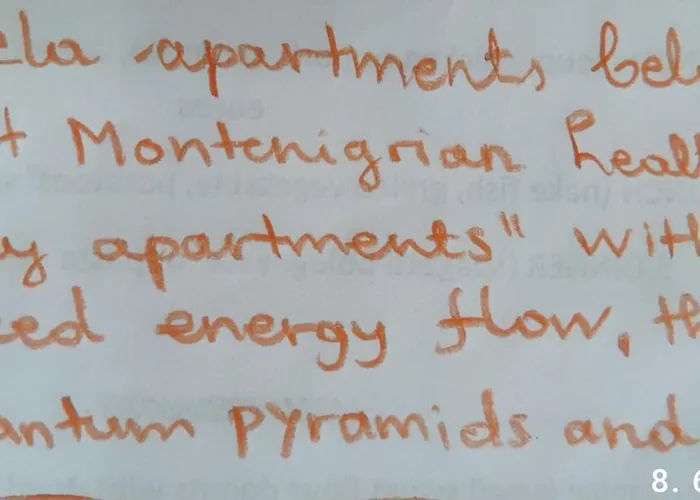 ela -apartments bel
t Montenigrian healt
y apartments" with
ced energy flow, th
antum pyramids and
8.